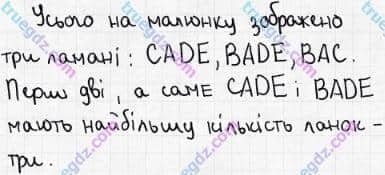 Усього на малюнку зображено
три ламані: CADE, BADE, BAC.
Перші дві, а саме CADE і BADE
мають найбільшу кількість ланок -
три.